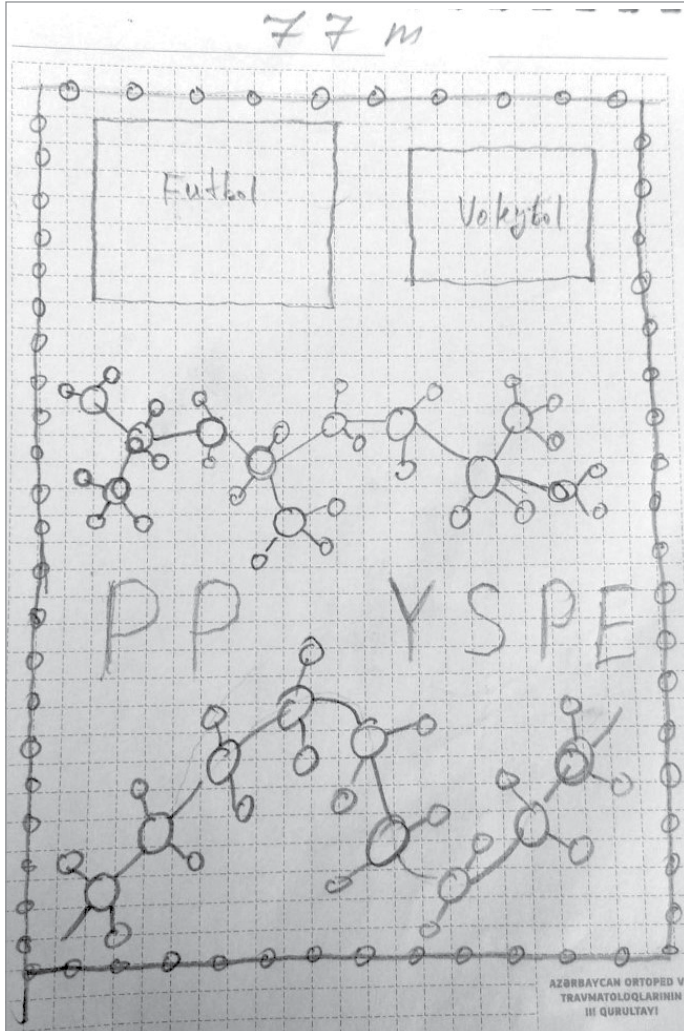 77 m
Futbol
Voleybol
PP YSPE
AZƏRBAYCAN ORTOPED V
TRAVMATOLOQLARININ
III QURULTAYI